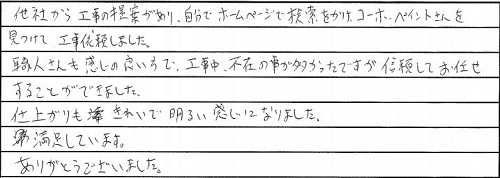 他社から工事の提案があり、自分でホームページで検索をかけ、コーホーペイントさんを
見つけて工事依頼しました。
職人さんも感じの良い方で、工事中、不在の事が多かったですが信頼してお任せ
することができました。
仕上がりも きれいで明るい感じになりました。
満足しています。
ありがとうございました。